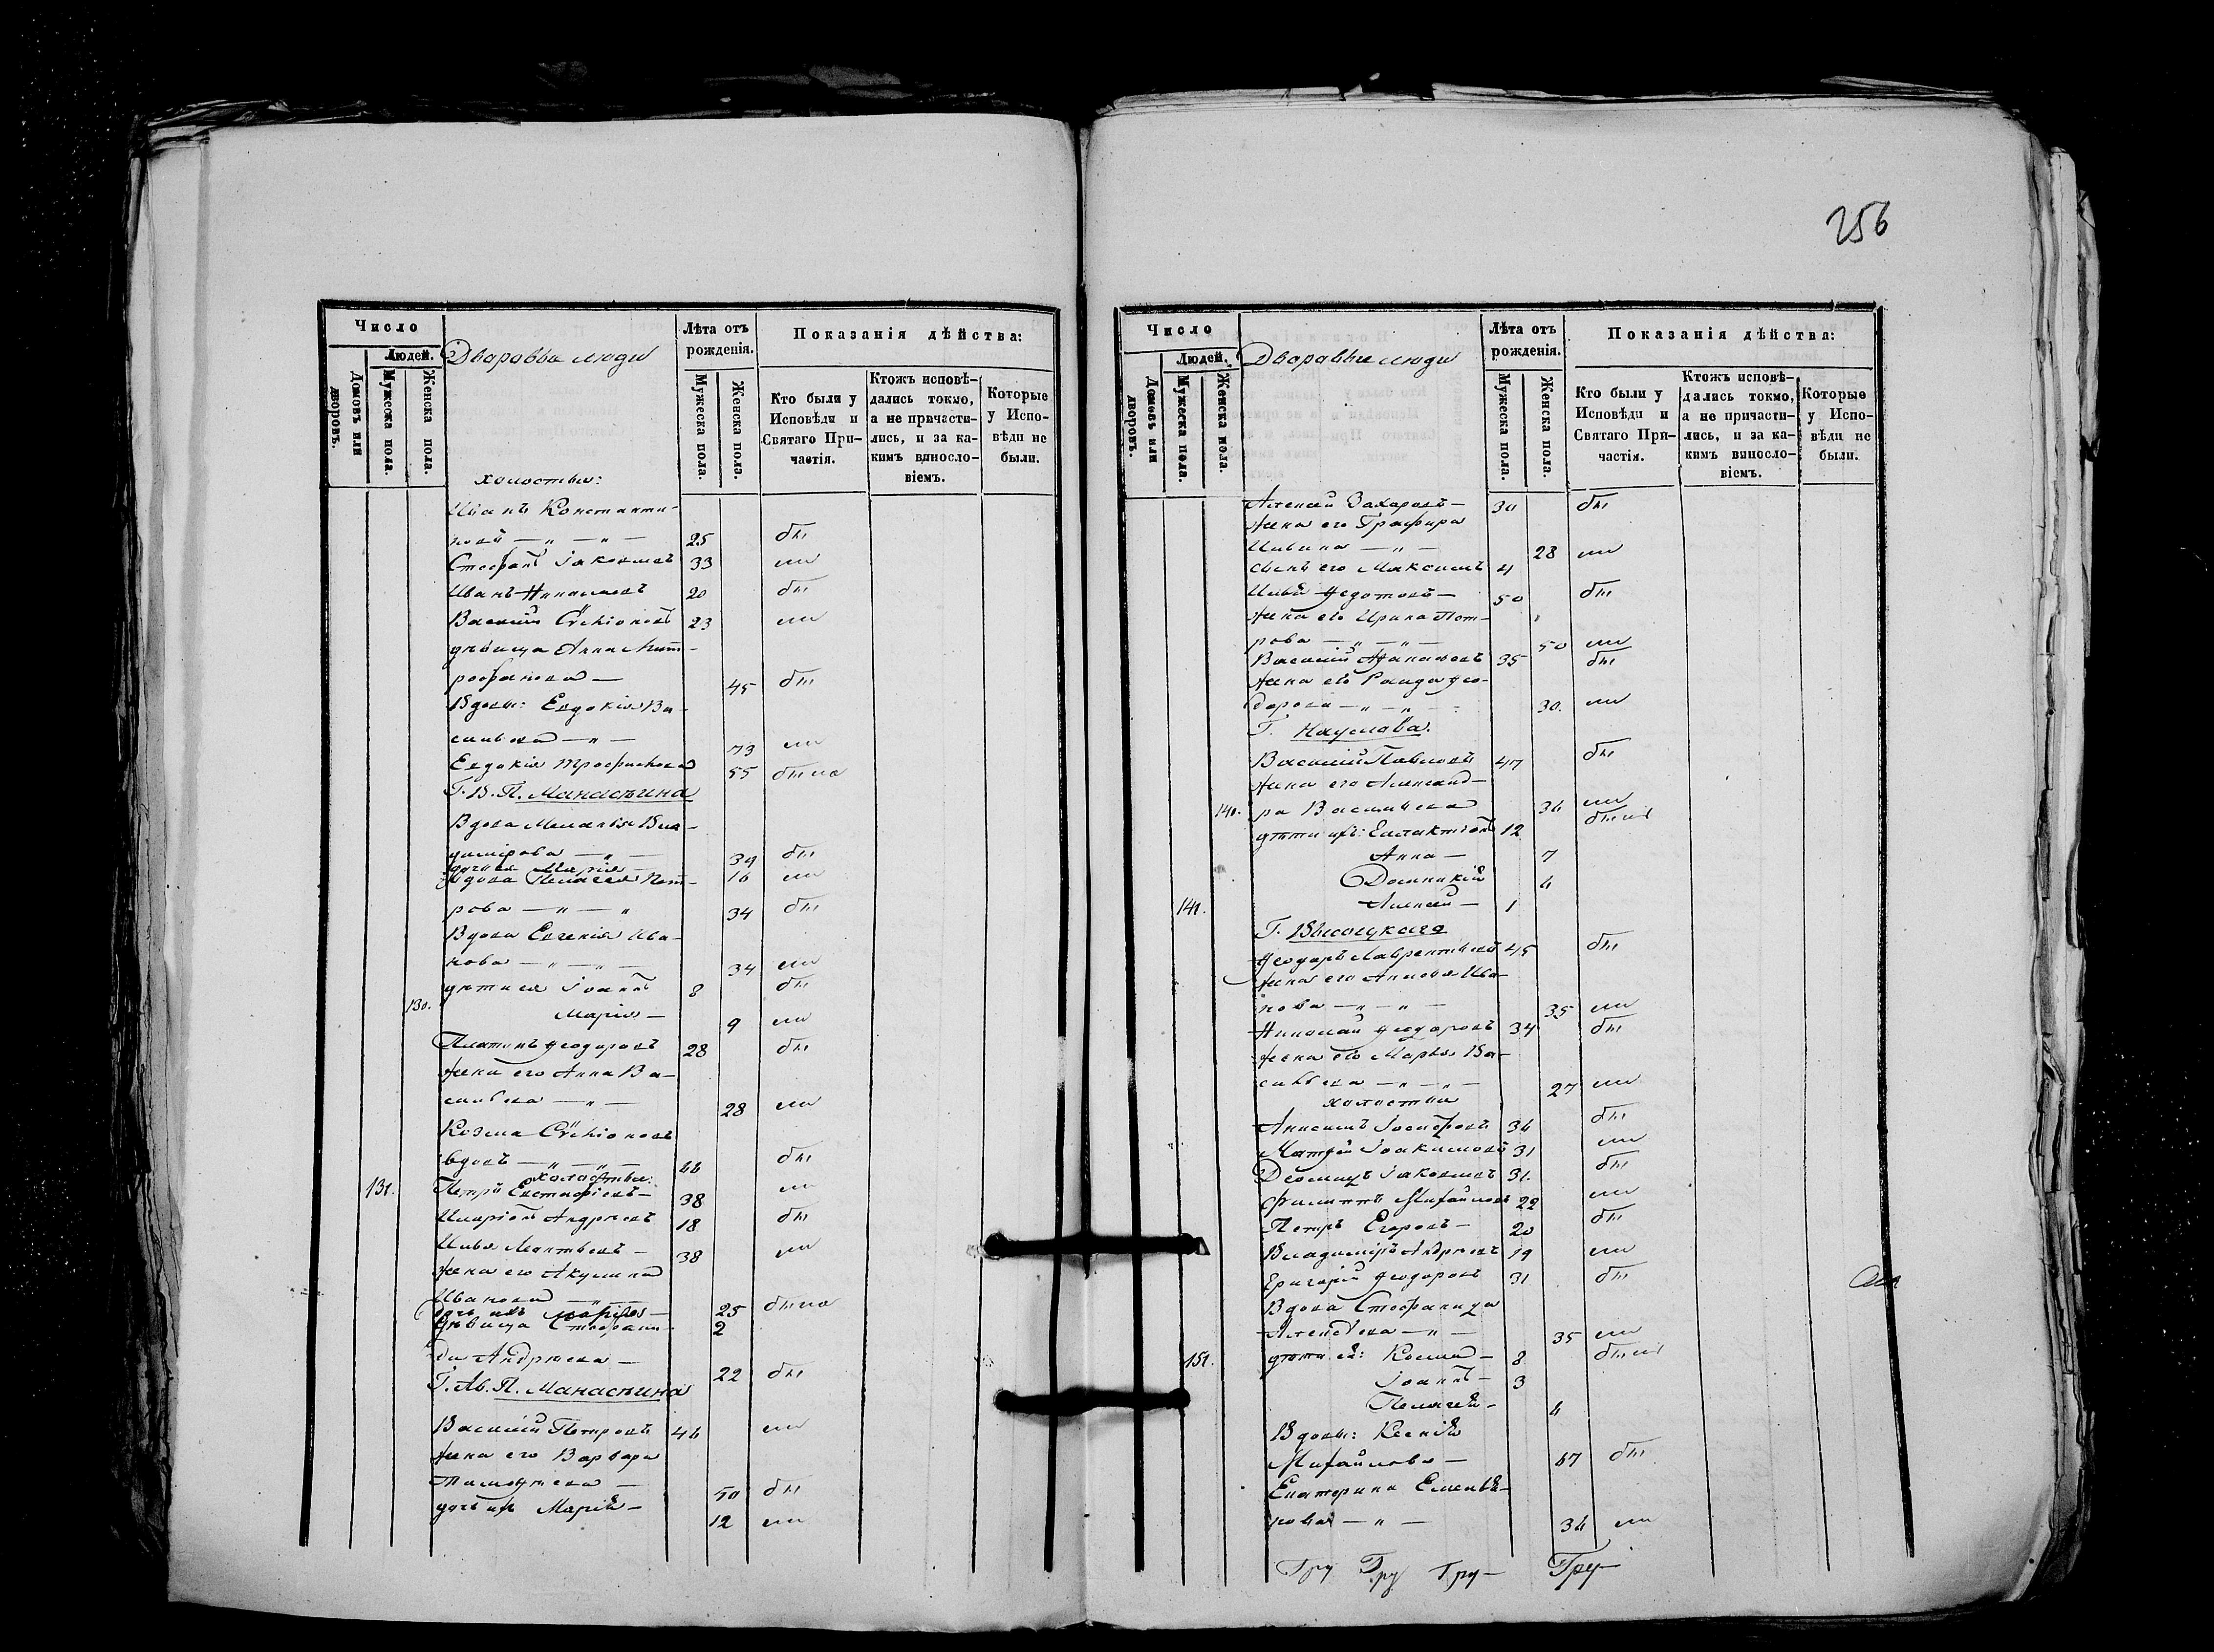 256
Число
Людей.
Домовъ или дворовъ.
Мужеска пола.
Женска пола.
Дворовыя люди
Лѣта отъ рожденія.
Мужеска пола.
Женска пола.
Показанія дѣйства:
Кто были у Исповѣди и Святаго При-
частія.
Ктожъ исповѣ-
дались токмо,
а не причасти-
лись, и за ка-
кимъ винесло-
віемъ.
Которые
у Испо-
вѣди не
были.
холостыя:
Иванъ Константи-
новъ — „ — „ — 25 бы
Стефанъ Іаковлевъ 33 ли
Иванъ Николаевъ 20 бы
Василій 23 ли
дѣвица Анна Мит-
рофанова — 45 бы
Вдовы: Евдокія Ва-
сильева — „ — 73 ли
Евдокія Трофимова 55 была
Г. В. П. Манасѣина
Вдова Меланья Вла-
димірова — „ — 39 бы
дочь ея Марія — 16 ли
Вдова Пелагея Пет-
рова — „ — „ 34 бы
Вдова Евгенія Ива-
нова — „ — „ — 34 ли
дѣти ея Іоаннъ 8 бы
130. Марія — 9 ли
Платонъ Ѳеодоровъ 28 бы
жена его Анна Ва-
сильева — „ — 28 ли
Козма
вдовъ — „ — „ — 66 бы
холостыя:
131. Петръ Евстафіевъ — 38 ли
Иларіонъ Андреевъ 18 бы
Илья Леонтьевъ — 38 ли
жена его Акулина
Иванова — „ — 25 была
дочь ихъ Марѳа — 2
дѣвица Стефани-
да Андреева — 22 бы
Г. Ал. П. Манасѣина
Василій Петровъ 46 ли
жена его Варвара
Тимоѳеева — 50 бы
дочь ихъ Марія — 12 ли
Число
Людей.
Домовъ или дворовъ.
Мужеска пола.
Женска пола.
Дворовыя люди
Лѣта отъ рожденія.
Мужеска пола.
Женска пола.
Показанія дѣйства:
Кто были у
Исповѣди и
Святаго При-
частія.
Ктожъ исповѣ-
дались токмо,
а не причасти-
лись, и за ка-
кимъ винесло-
віемъ.
Которые
у Испо-
вѣди не
были.
Алексей Захаровъ — 30 бы
жена его Графира
Ильина — „ — 28 ли
сынъ его Максимъ 4
Илья Ѳедотовъ — 50 бы
жена его Ирина Пет-
рова — „ — „ — 50 ли
Василій Аѳанасьевъ 35 бы
жена его Раида Ѳео-
дорова — „ — „ — 30. ли
Г. Наумова.
Василій Павловъ 47 бы
жена его Александ-
140. ра Васильева 36 ли
дѣти ихъ: Галактіонъ 12 были
Анна — 7
Домникія 6
141. Алексей — 1
Г. Высоцкаго
Ѳеодоръ Лаврентьевъ 45 бы
жена его Анисья Ива-
нова — „ — „ — 35 ли
Николай Ѳеодоровъ 34 бы
жена его Марья Ва-
сильева — „ — „ — 27 ли
холостыя
Анисимъ Іосифовъ 36 бы
Матѳей Іоакимовъ 31 ли
Діомидъ Іаковлевъ 31. бы
Филиппъ Михайловъ 22 ли
Петръ Егоровъ — 20 бы
Владиміръ Андреевъ 19 ли
Григорій Ѳеодоровъ 31 бы
Вдова Стефанида
Алексѣева — „ — 35 ли
151. дѣти ея: Козма — 8 были
Іоаннъ — 3
Пелагея — 6
Вдовы: Ксенія
Михайлова — 67 бы
Екатерина
— „ — 36 ли
Гру Гру Гру — Гру —